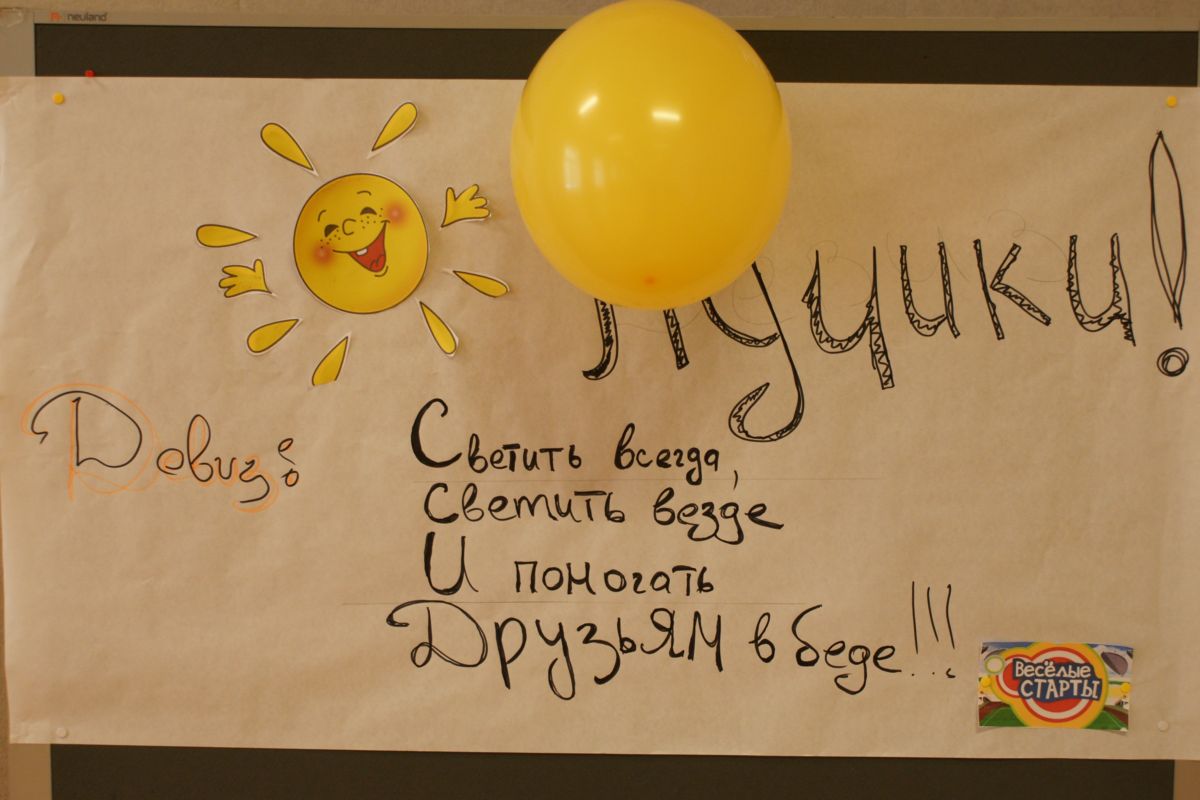 neuland
Лучики!
Девиз:
Светить всегда,
светить везде
И помогать
Друзьям в беде!!!
Весёлые
СТАРТЫ